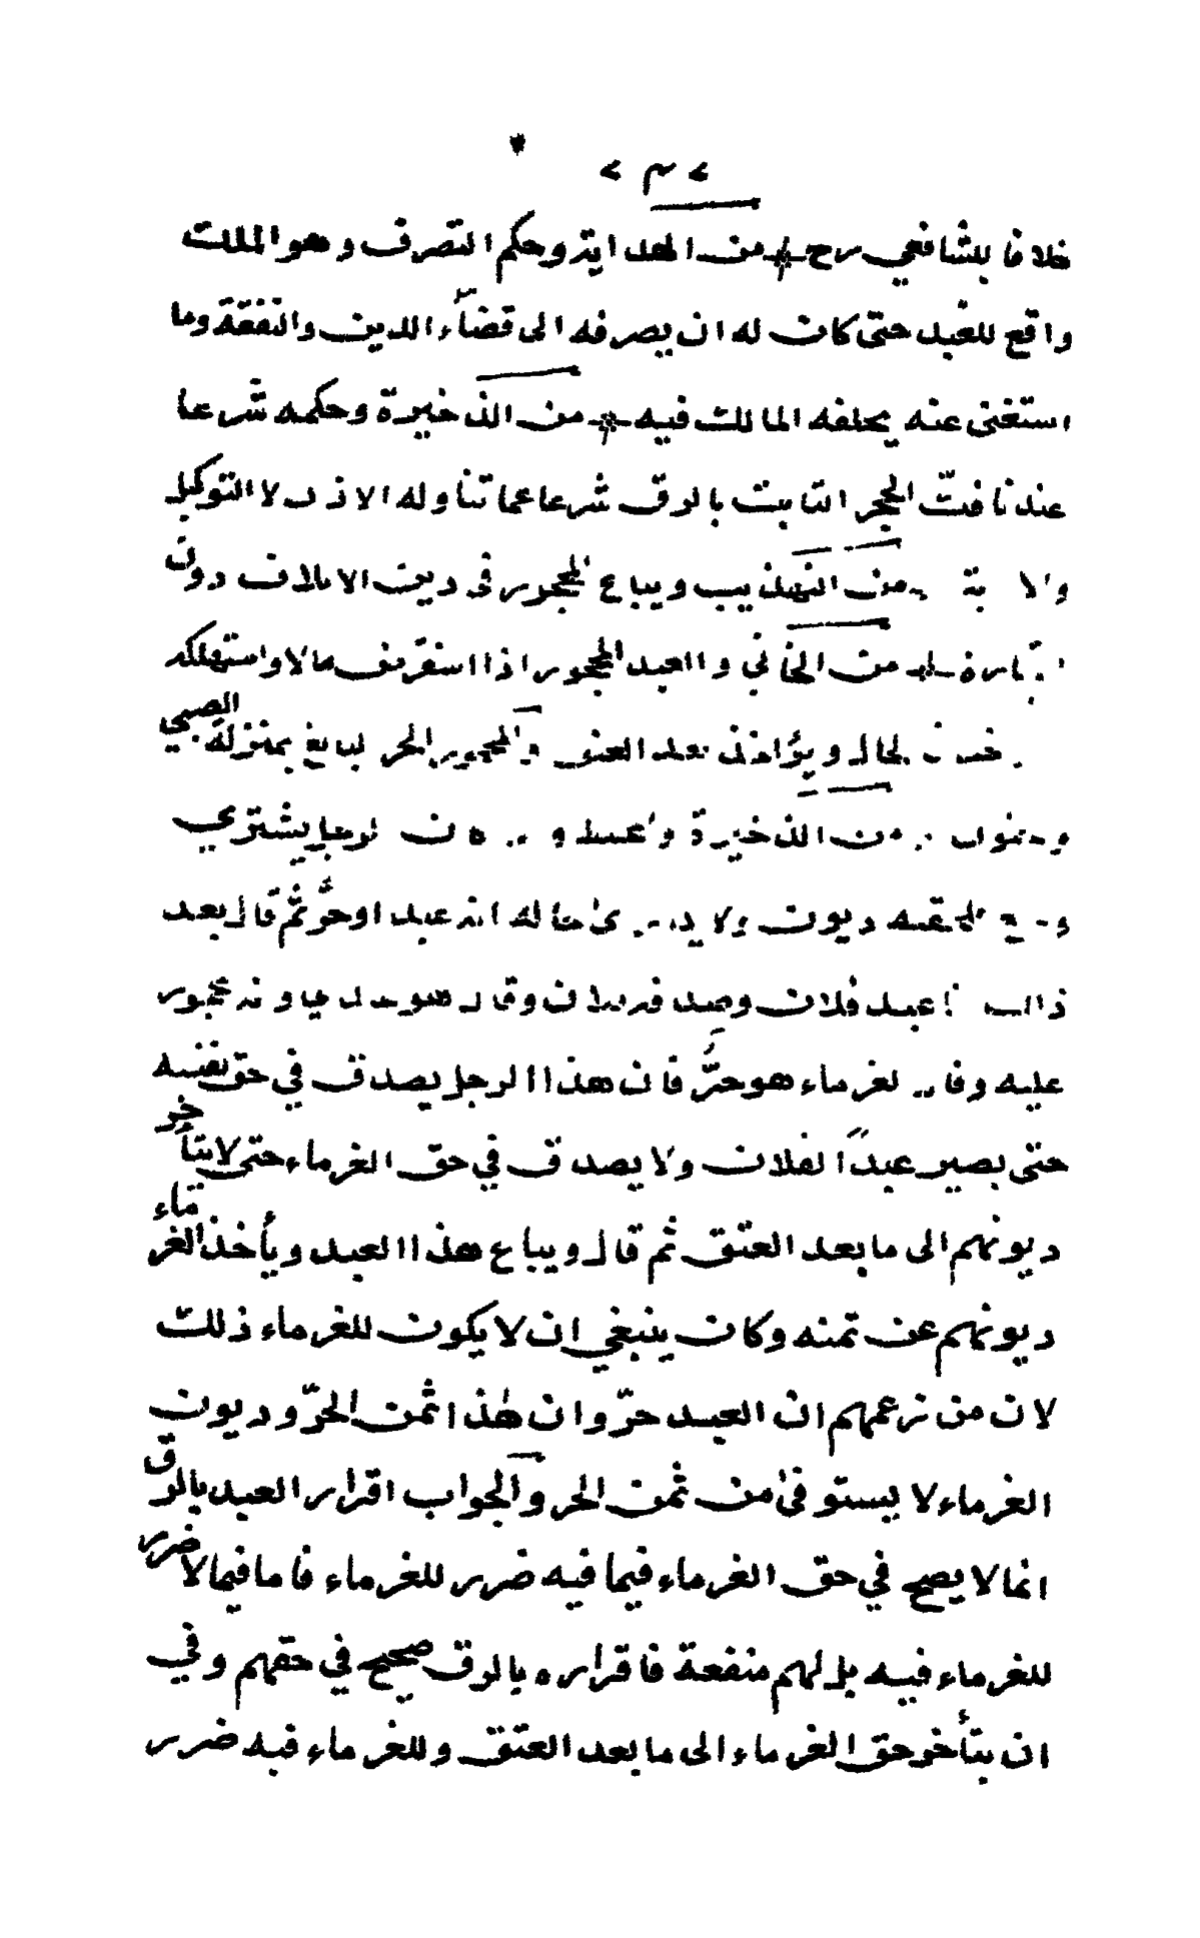 خلافا للشافعي رح من الهداية وحكم التصرف وهو الملك
واقع للعبد حتى كان له ان يصرفه الى قضاء الدين والنفقة وما
استغنى عنه يخلفه المالك فيه من الذخيرة وحكمه شرعا
عندنا فكّ الحجر الثابت بالرق شرعا عما تناوله الاذن لا التوكيل
من التهذيب ويباع المحجور فى دين الاتلاف دون
من الخاني والعبد المحجور اذا استقرض مالا واستهلكه
ويؤاخذ بعد العتق والمحجور الحر البالغ بمنزلة الصبي
من الذخيرة يشتري
ديون ولا حاله انه عبد او حرٌّ ثم قال بعد
عبد فلان وقال هو محجور
عليه وقال الغرماء هو حرٌّ فان هذا الرجل يصدق في حق نفسه
حتى يصير عبدًا لفلان ولا يصدق في حق الغرماء حتى لا يتأخر
ديونهم الى ما بعد العتق ثم قال ويباع هذا العبد ويأخذ الغرماء
ديونهم عن ثمنه وكان ينبغي ان لا يكون للغرماء ذلك
لان من زعمهم ان العبد حرّ وان هذا ثمن الحرّ وديون
الغرماء لا يستوفى من ثمن الحر والجواب اقرار العبد بالرق
انما لا يصح في حق الغرماء فيما فيه ضرر للغرماء فاما فيما لا ضرر
للغرماء فيه بل لهم منفعة فاقراره بالرق صحيح في حقهم وفي
ان يتأخر حق الغرماء الى ما بعد العتق وللغرماء فيه ضرر